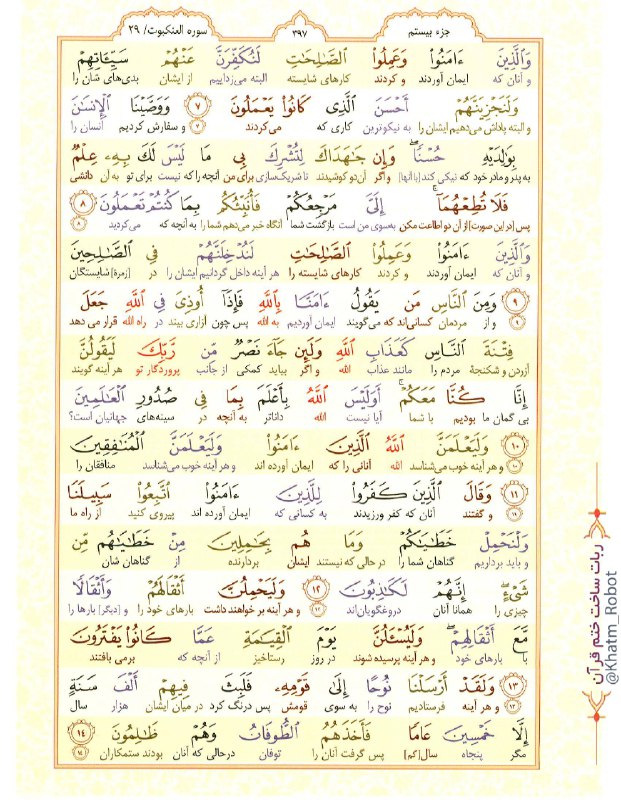 جزء بیستم
۳۹۷
سوره العنکبوت/ ۲۹
وَالَّذِينَ ءَامَنُوا۟ وَعَمِلُوا۟ الصَّـٰلِحَـٰتِ لَنُكَفِّرَنَّ عَنْهُمْ سَيِّـَٔاتِهِمْ
و آنان که ایمان آوردند و کردند کارهای شایسته البته می‌زداییم از ایشان بدی‌های شان را
وَلَنَجْزِيَنَّهُمْ أَحْسَنَ الَّذِى كَانُوا۟ يَعْمَلُونَ ۷ وَوَصَّيْنَا الْإِنسَـٰنَ
و البته پاداش می‌دهیم ایشان را به نیکوترین کاری که می‌کردند ۷ و سفارش کردیم انسان را
بِوَٰلِدَيْهِ حُسْنًا ۖ وَإِن جَـٰهَدَاكَ لِتُشْرِكَ بِى مَا لَيْسَ لَكَ بِهِۦ عِلْمٌ
به پدر و مادر خود که نیکی کند [با آنها] و اگر آن‌دو کوشیدند تا شریک‌سازی برای من آنچه را که نیست برای تو به آن دانشی
فَلَا تُطِعْهُمَا ۚ إِلَىَّ مَرْجِعُكُمْ فَأُنَبِّئُكُم بِمَا كُنتُمْ تَعْمَلُونَ ۸
پس [در این صورت] از آن دو اطاعت مکن به‌سوی من است بازگشت شما آنگاه خبر می‌دهم شما را به آنچه که می‌کردید ۸
وَالَّذِينَ ءَامَنُوا۟ وَعَمِلُوا۟ الصَّـٰلِحَـٰتِ لَنُدْخِلَنَّهُمْ فِى الصَّـٰلِحِينَ
و آنان که ایمان آوردند و کردند کارهای شایسته را هر آینه داخل گردانیم ایشان را در [زمرۀ] شایستگان
۹ وَمِنَ النَّاسِ مَن يَقُولُ ءَامَنَّا بِاللَّهِ فَإِذَآ أُوذِىَ فِى اللَّهِ جَعَلَ
۹ و از مردمان کسانی‌اند که می‌گویند ایمان آوردیم به الله پس چون آزاری بیند در راه الله قرار می دهد
فِتْنَةَ النَّاسِ كَعَذَابِ اللَّهِ وَلَئِن جَآءَ نَصْرٌ مِّن رَّبِّكَ لَيَقُولُنَّ
آزردن و شکنجۀ مردم را مانند عذاب الله و اگر بیاید کمکی از جانب پروردگار تو هر آینه گویند
إِنَّا كُنَّا مَعَكُمْ ۚ أَوَلَيْسَ اللَّهُ بِأَعْلَمَ بِمَا فِى صُدُورِ الْعَـٰلَمِينَ
بی گمان ما بودیم با شما آیا نیست الله داناتر به آنچه در سینه‌های جهانیان است؟
۱۰ وَلَيَعْلَمَنَّ اللَّهُ الَّذِينَ ءَامَنُوا۟ وَلَيَعْلَمَنَّ الْمُنَـٰفِقِينَ
۱۰ و هر آینه خوب می‌شناسد الله آنانی را که ایمان آورده اند و هر آینه خوب می‌شناسد منافقان را
۱۱ وَقَالَ الَّذِينَ كَفَرُوا۟ لِلَّذِينَ ءَامَنُوا۟ اتَّبِعُوا۟ سَبِيلَنَا
۱۱ و گفتند آنان که کفر ورزیدند به کسانی که ایمان آورده اند پیروی کنید از راه ما
وَلْنَحْمِلْ خَطَـٰيَـٰكُمْ وَمَا هُم بِحَـٰمِلِينَ مِنْ خَطَـٰيَـٰهُم مِّن
و باید برداریم گناهان شما را در حالی که نیستند ایشان بردارنده از گناهان شان
شَىْءٍ ۖ إِنَّهُمْ لَكَـٰذِبُونَ ۱۲ وَلَيَحْمِلُنَّ أَثْقَالَهُمْ وَأَثْقَالًا
چیزی را همانا آنان دروغگویان‌اند ۱۲ و هر آینه بر خواهند داشت بارهای خود را و [دیگر] بارها را
مَّعَ أَثْقَالِهِمْ ۖ وَلَيُسْـَٔلُنَّ يَوْمَ الْقِيَـٰمَةِ عَمَّا كَانُوا۟ يَفْتَرُونَ
با بارهای خود و هر آینه پرسیده شوند در روز رستاخیز از آنچه که برمی بافتند
۱۳ وَلَقَدْ أَرْسَلْنَا نُوحًا إِلَىٰ قَوْمِهِۦ فَلَبِثَ فِيهِمْ أَلْفَ سَنَةٍ
۱۳ و هر آینه فرستادیم نوح را به سوی قومش پس درنگ کرد در میان ایشان هزار سال
إِلَّا خَمْسِينَ عَامًا فَأَخَذَهُمُ الطُّوفَانُ وَهُمْ ظَـٰلِمُونَ ۱۴
مگر پنجاه سال [کم] پس گرفت آنان را توفان درحالی که آنان بودند ستمکاران ۱۴
ربات ساخت ختم قرآن
@Khatm_Robot